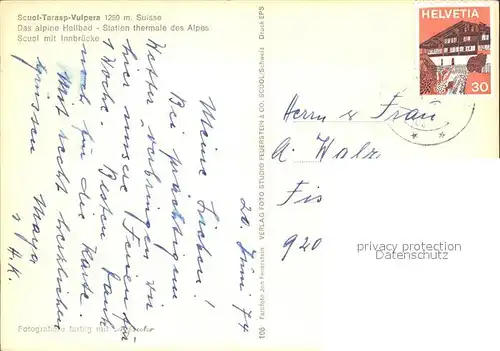 Scuol-Tarasp-Vulpera 1250 m. Suisse
Das alpine Heilbad - Station thermale des Alpes
Scuol mit Innbrücke
20. Juni 74
Meine Lieben!
Bei prächtigem
Wetter verbringen wir
hier unsere Ferien für
1 Woche. Besten Dank
noch für die Karte.
Mit recht herzlichen
Grüssen Maya
u. H.K.
Fotografiere farbig mit
106 Farbfoto Jon Feuerstein
VERLAG FOTO STUDIO FEUERSTEIN & CO. SCUOL/Schweiz
Druck EPS
HELVETIA
30
Herrn u Frau
A. Walz
Fis
920
privacy protection
oldthing.de